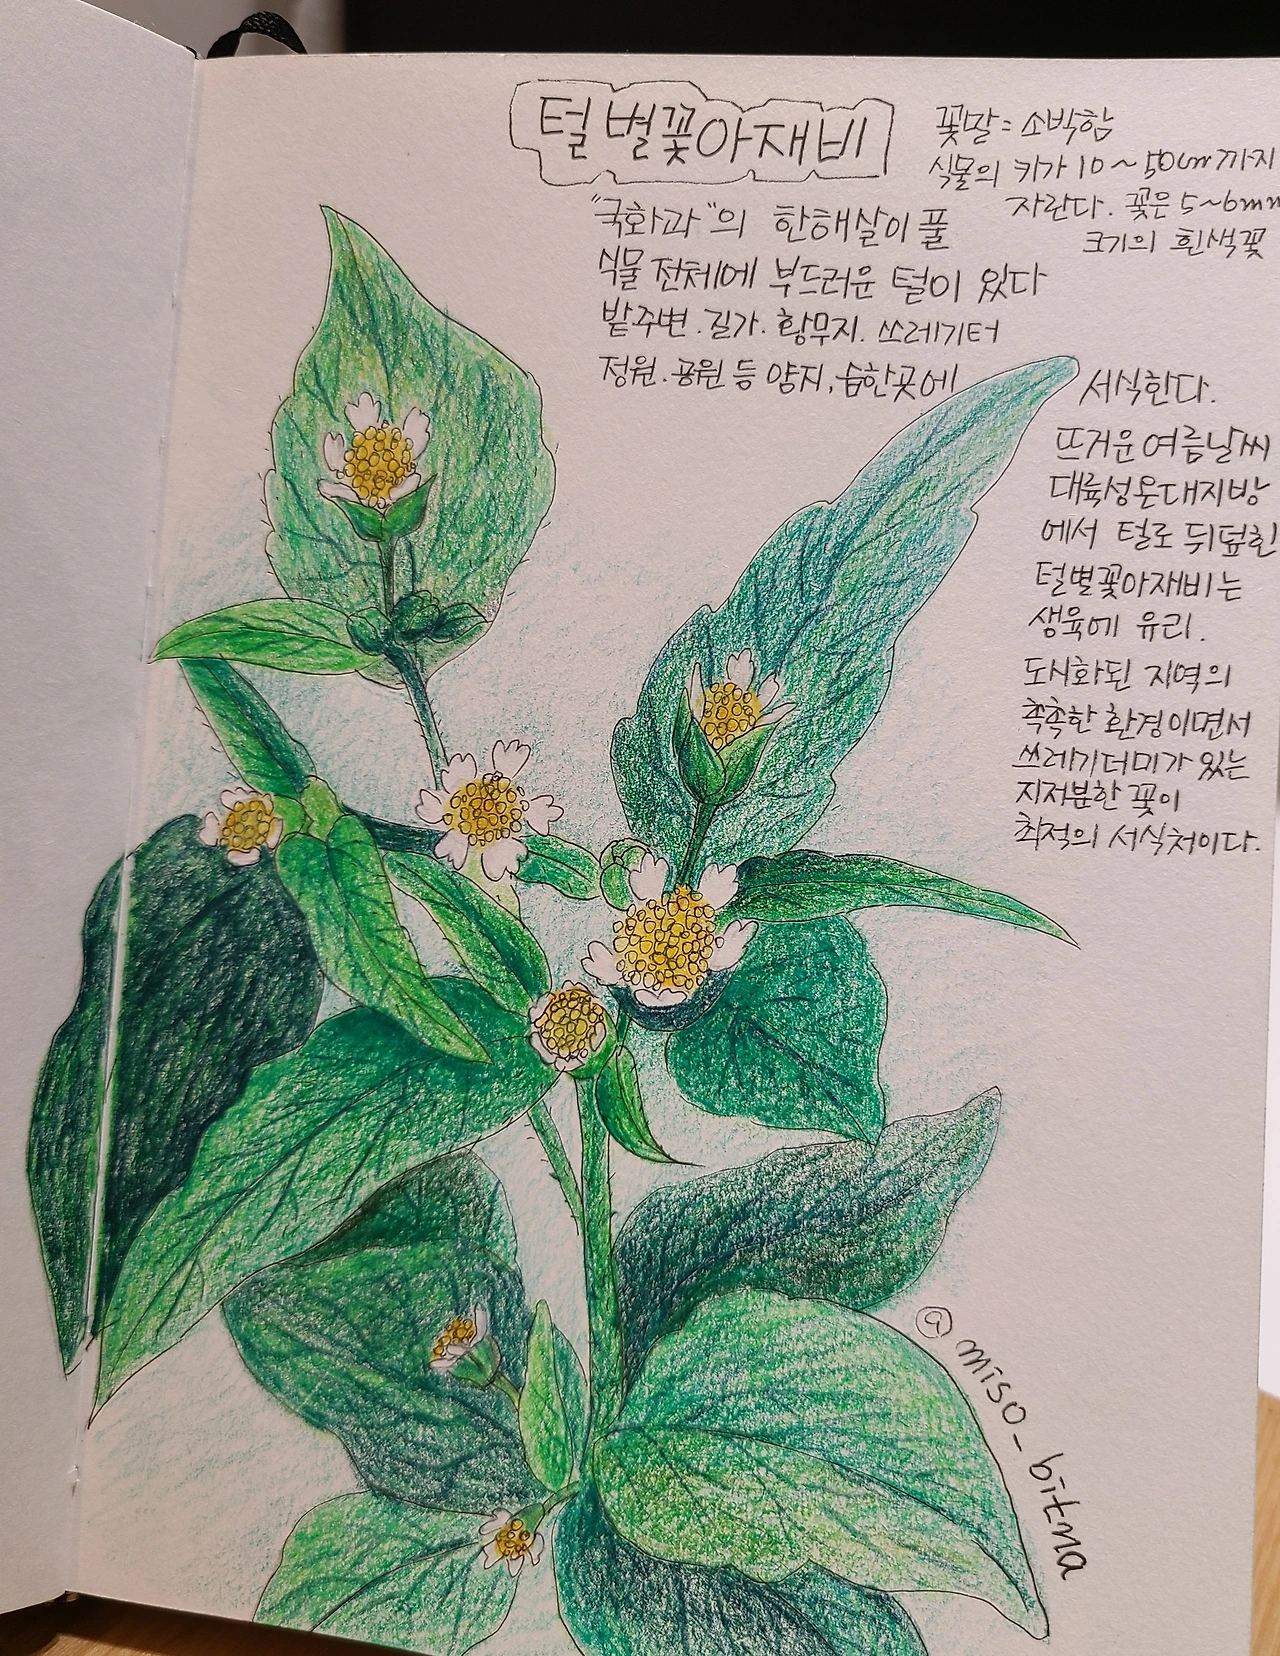 털별꽃아재비
꽃말 = 소박함
식물의 키가 10~50cm까지
자란다. 꽃은 5~6mm
크기의 흰색꽃
"국화과"의 한해살이 풀
식물 전체에 부드러운 털이 있다
밭주변. 길가. 황무지. 쓰레기터
정원. 공원 등 양지, 습한곳에
서식한다.
뜨거운 여름날씨
대륙성온대지방
에서 털로 뒤덮힌
털별꽃아재비는
생육에 유리.
도시화된 지역의
촉촉한 환경이면서
쓰레기더미가 있는
지저분한 꽃이
최적의 서식처이다.
@miso_bitna